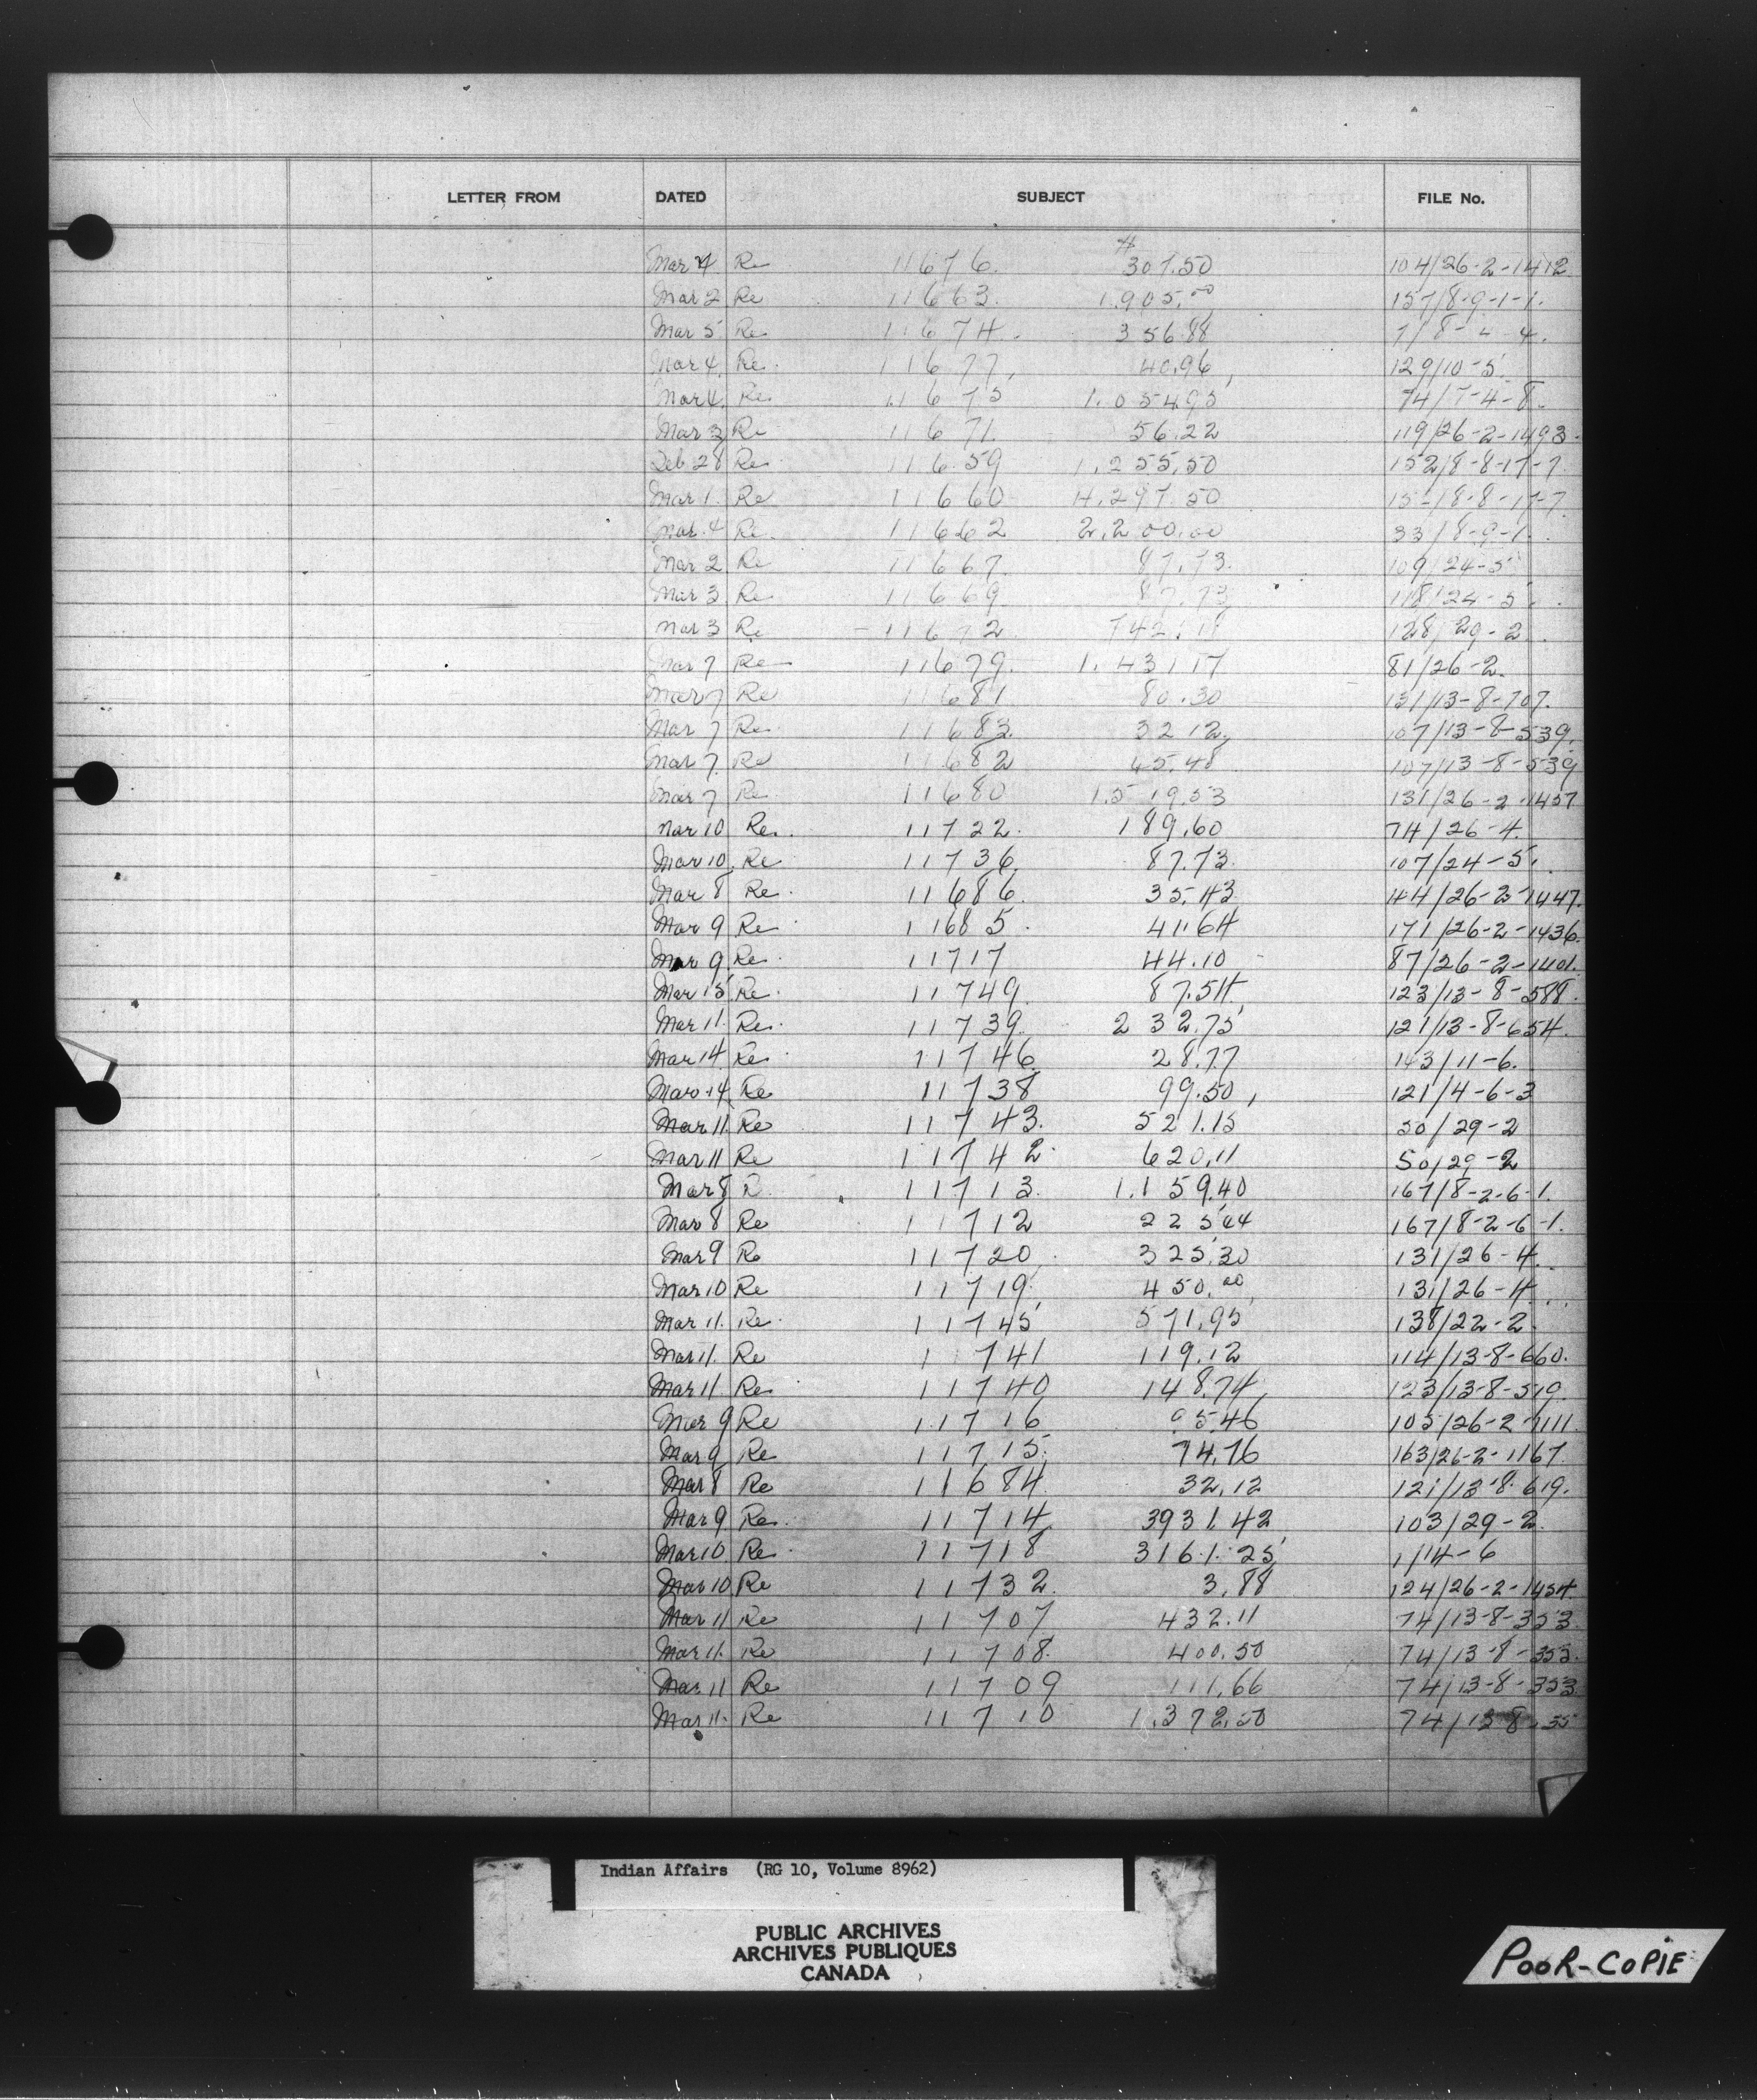 LETTER FROM DATED SUBJECT FILE No.
Mar 4 Re 11676. $307.50 104/26-2-1412
Mar 2 Re 11663. 1.905.00 157/8-9-1-1.
Mar 5 Re 11674. 356.88 7/8- -4.
Mar 4. Re. 11677, 40.96, 129/10-5.
Mar 4. Re. 11675 1.054.95 74/7-4-8.
Mar 3 Re 11671. 56.22 119/26-2-1493.
Feb 28 Re. 11659 1.255.50 152/8-8-17-7.
Mar 1. Re 11660 4.297.50 15-/8-8-17-7
Mar. 4 Re. 11662 2.200.00 33/8-9-1.
Mar 2 Re 11667. 87.73. 109/24-5
Mar 3 Re. 11669. 87.73 118/24-5.
Mar 3 Re 11672 742.18 128/29-2.
Mar 7 Re 11679. 1.431.17 81/26-2.
Mar 7 Re 11681 80.30 131/13-8-707.
Mar 7 Re. 11683. 32.12, 107/13-8-539.
Mar 7. Re 11682 45.48 107/13-8-539
Mar 7 Re. 11680 1.519.53 131/26-2-1457
Mar 10 Re. 11722. 189.60 74/26-4.
Mar 10. Re 11736. 87.73. 107/24-5.
Mar 8 Re. 11686. 35.43 144/26-2-1447.
Mar 9 Re 11685. 41.64 171/26-2-1436.
Mar 9. Re. 11717 44.10 87/26-2-1401.
Mar 15 Re. 11749 87.54, 123/13-8-588.
Mar 11. Re. 11739. 232.75 121/13-8-654.
Mar 14. Re. 11746. 28.77 143/11-6.
Mar 14 Re 11738 99.50, 121/4-6-3
Mar 11. Re 11743. 521.15 50/29-2
Mar 11 Re 11742. 620.11 50/29-2
Mar 8 R. 11713. 1.159.40 167/8-2-6-1.
Mar 8 Re 11712 225.44 167/8-2-6-1.
Mar 9 Re 11720. 325.30 131/26-4.
Mar 10 Re 11719. 450.00 131/26-4.
Mar 11. Re. 11745 571.95 138/22-2.
Mar 11. Re 11741 119.12 114/13-8-660.
Mar 11 Re. 11740 148.74, 123/13-8-519.
Mar 9 Re 11716 5.46 105/26-2-1111.
Mar 9 Re 11715. 74.76 163/26-2-1167.
Mar 8 Re 11684 32.12 121/13-8-619.
Mar 9 Re. 11714 3931.42 103/29-2.
Mar 10 Re. 11718 3161.25 1/14-6
Mar 10 Re 11732. 3.88 124/26-2-1454.
Mar 11 Re 11707 432.11 74/13-8-353
Mar 11. Re 11708. 400.50 74/13-8-353.
Mar. 11 Re 11709 111.66 74/13-8-353
Mar 11. Re 11710 1.372.50 74/13-8-35
Indian Affairs (RG 10, Volume 8962)
PUBLIC ARCHIVES
ARCHIVES PUBLIQUES
CANADA
POOR-COPIE